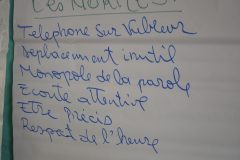 LES NORMES:
Telephone sur Vibreur
Deplacement inutil
Monopole de la parole
Ecoute attentive
Etre précis
Respat de l'heure